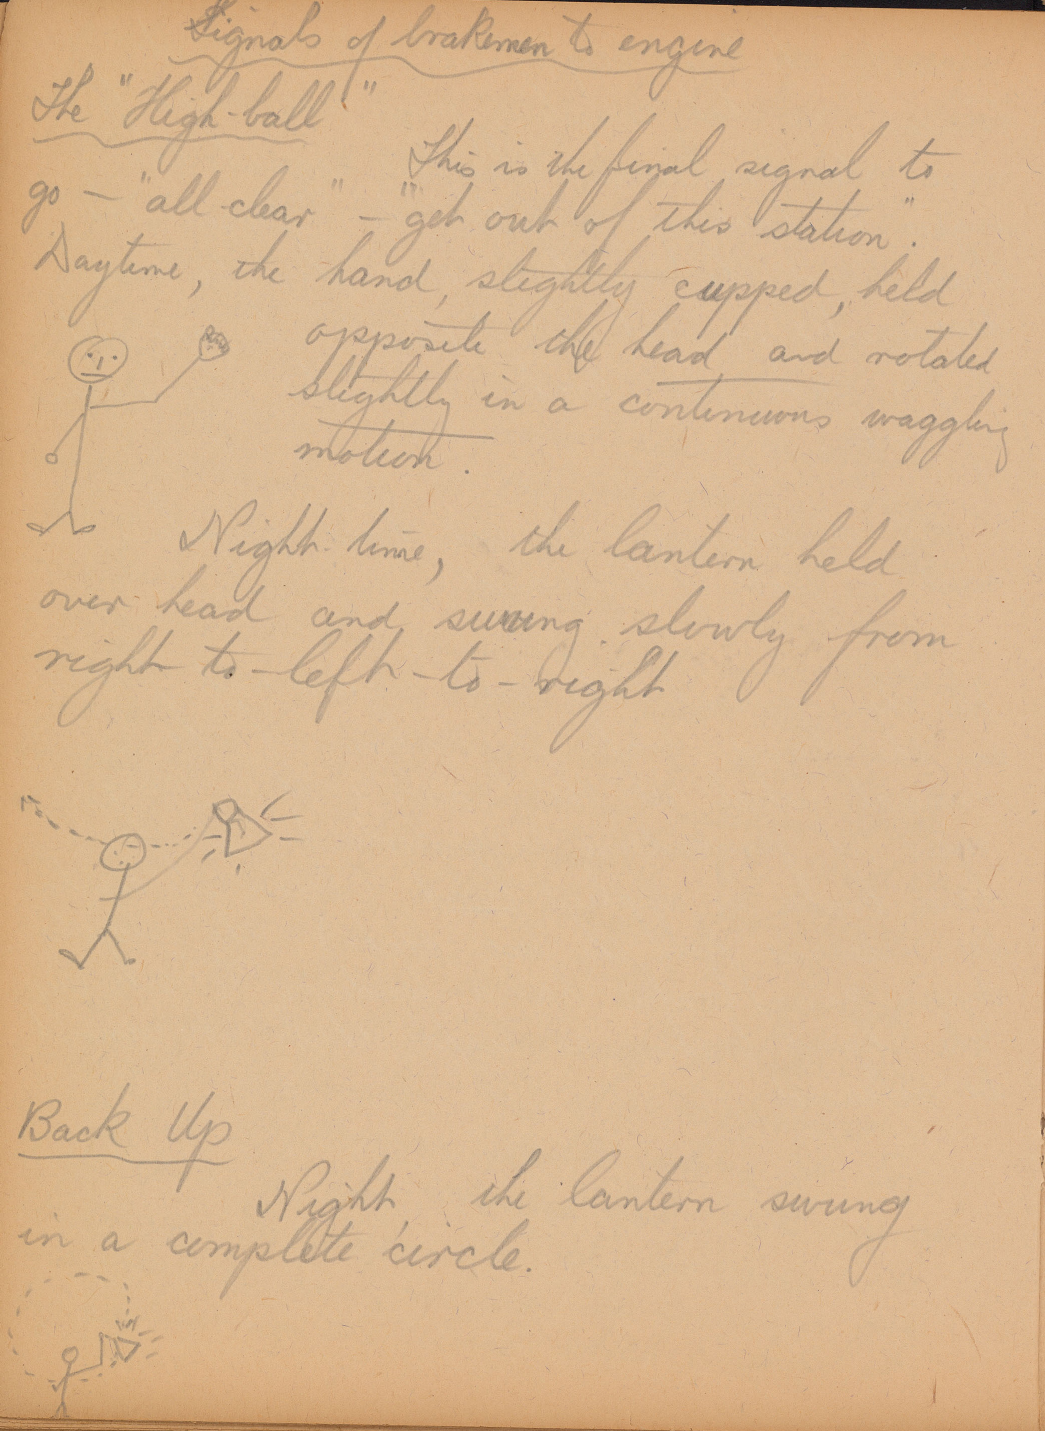 Signals of brakemen to engine
The "High-ball"
This is the final signal to
go — "all-clear" — "get out of this station".
Daytime, the hand, slightly cupped, held
opposite the head and rotated
slightly in a continuous waggling
motion.
Night-time, the lantern held
over head and swung slowly from
right to-left-to-right
Back Up
Night, the lantern swung
in a complete circle.